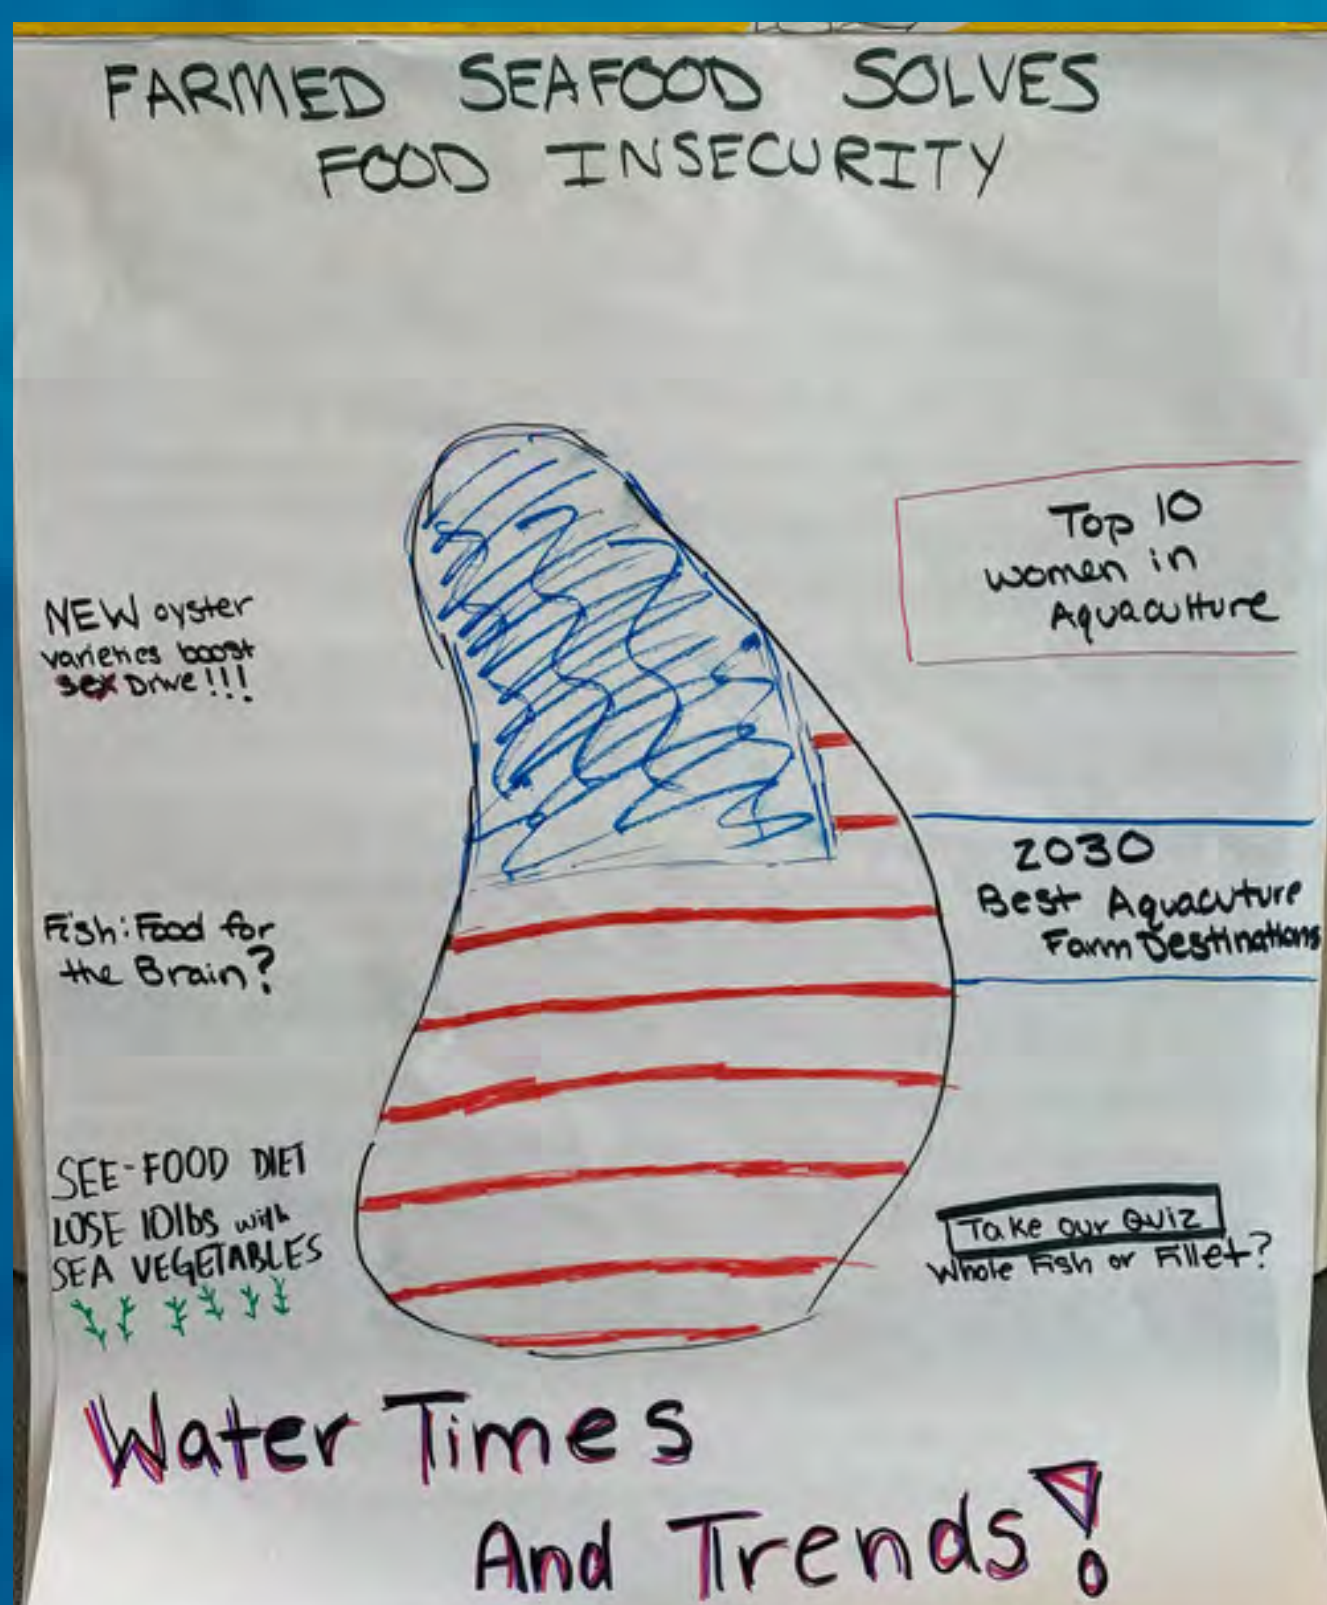 FARMED SEAFOOD SOLVES
FOOD INSECURITY
NEW oyster
varieties boost
sex Drive!!!
Top 10
women in
Aquaculture
2030
Best Aquacuture
Farm Destinations
Fish: Food for
the Brain?
SEE-FOOD DIET
LOSE 10lbs with
SEA VEGETABLES
Take our Quiz
Whole Fish or Fillet?
Water Times
And Trends!